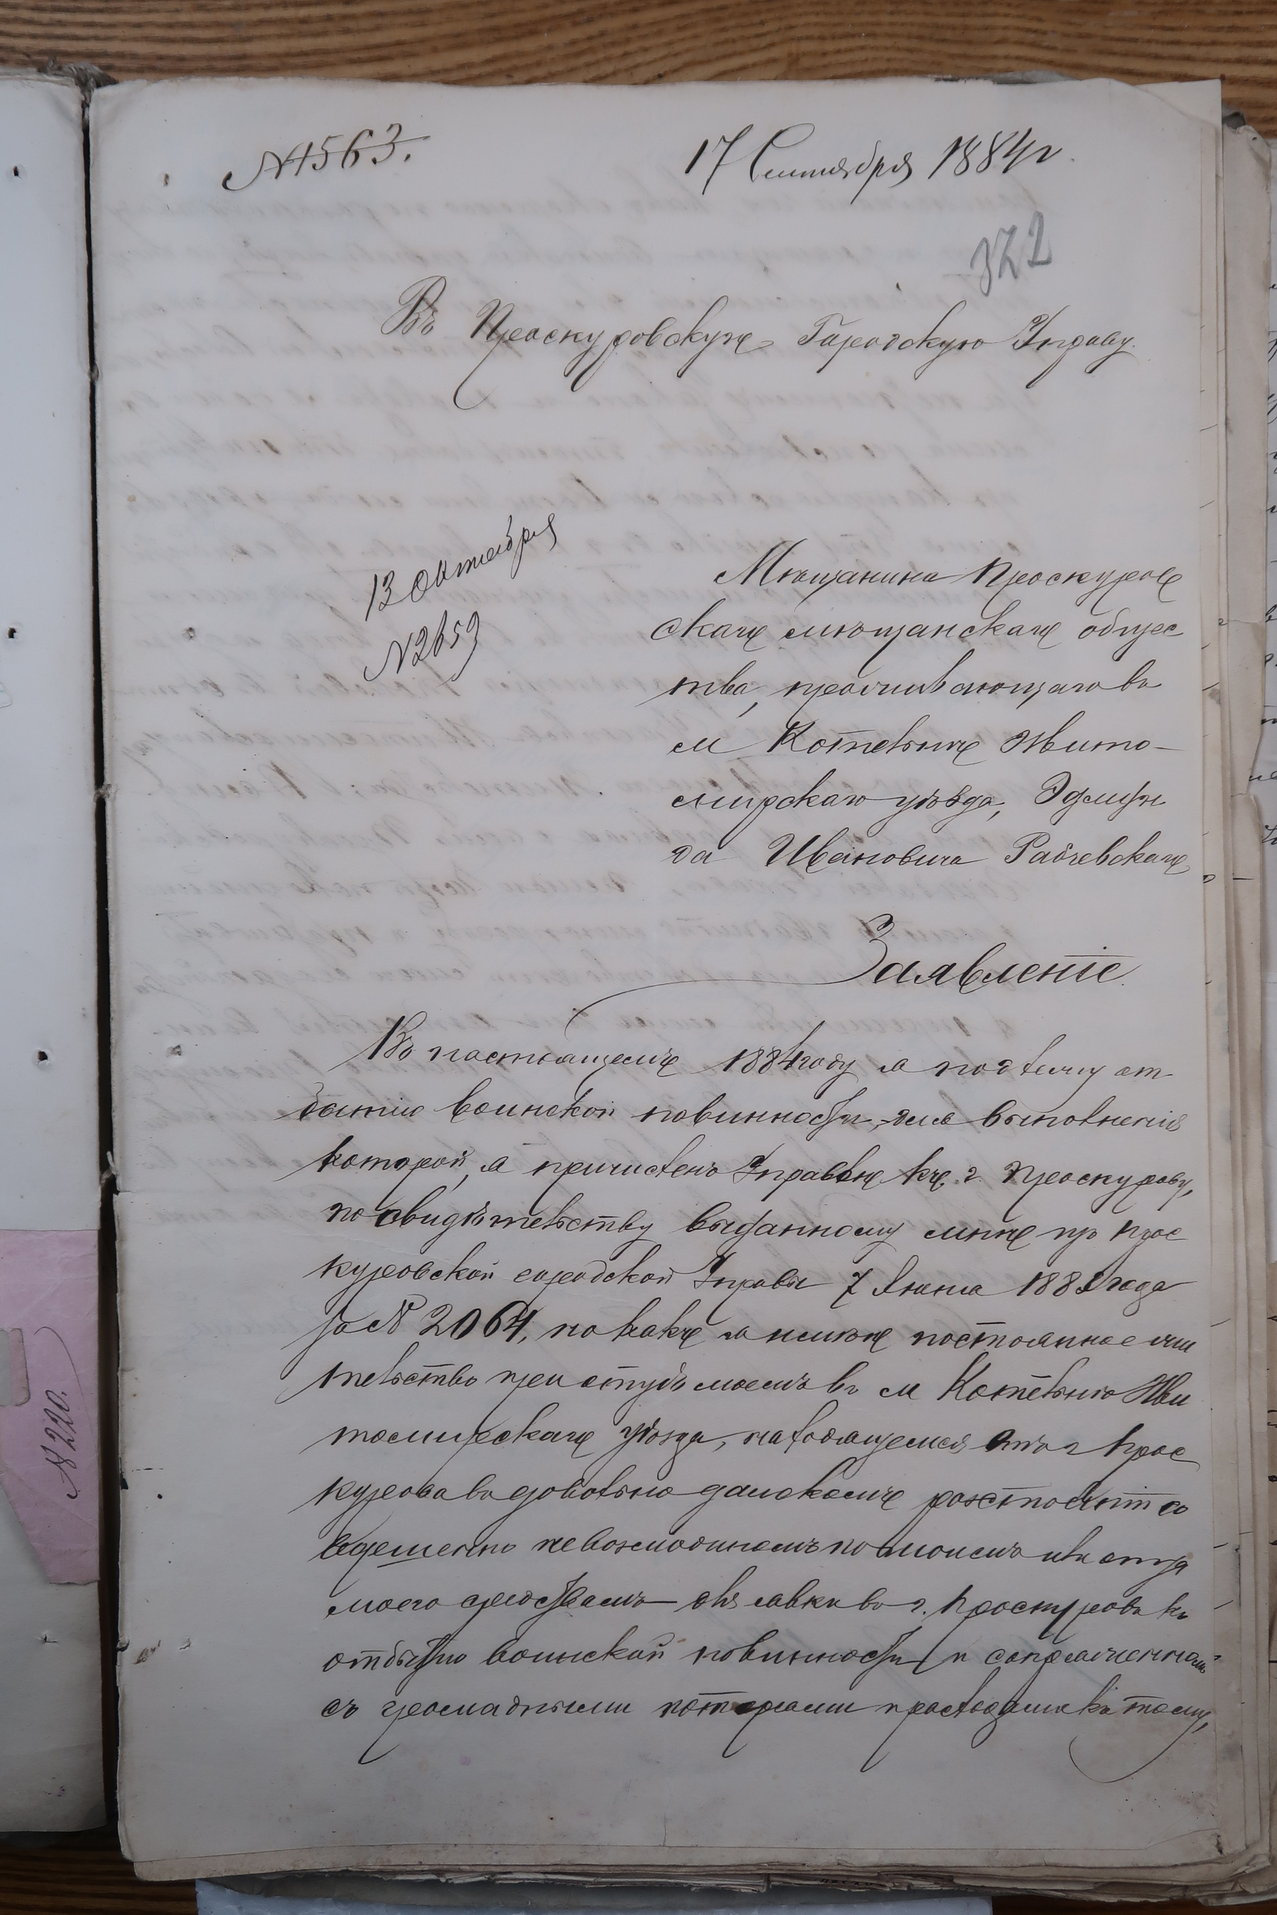 №1563.
17 Сентября 1884 г.
322
Въ Проскуровскую Городскую Управу.
13 Октября
№2659
Мѣщанина Проскуров
скаго мѣщанскаго общес
тва, проживающаго въ
м Котельнѣ Жито-
мирскаго уѣзда, Эдмун
да Ивановича Рабчевскаго
Заявленіе.
Въ настоящемъ 1884 году я подлежу от
бытію воинской повинности, для выполненія
которой, я причисленъ Управою къ г. Проскурову,
по свидѣтельству выданному мнѣ изъ Прос
куровской городской Управы 7 Іюня 188 года
за № 2064, но какъ я имѣю постоянное жи
тельство при отцѣ моемъ въ м Котельнѣ Жи
томирскаго уѣзда, находящемся отъ г Прос
курова въ довольно далекомъ разстояніи то
невозможномъ по моимъ или отца
моего средствамъ явки въ г. Проскуровъ къ
отбытію воинской повинности и сопряженнымъ
съ громадными потерями проѣздамъ къ тому,
№ 220.